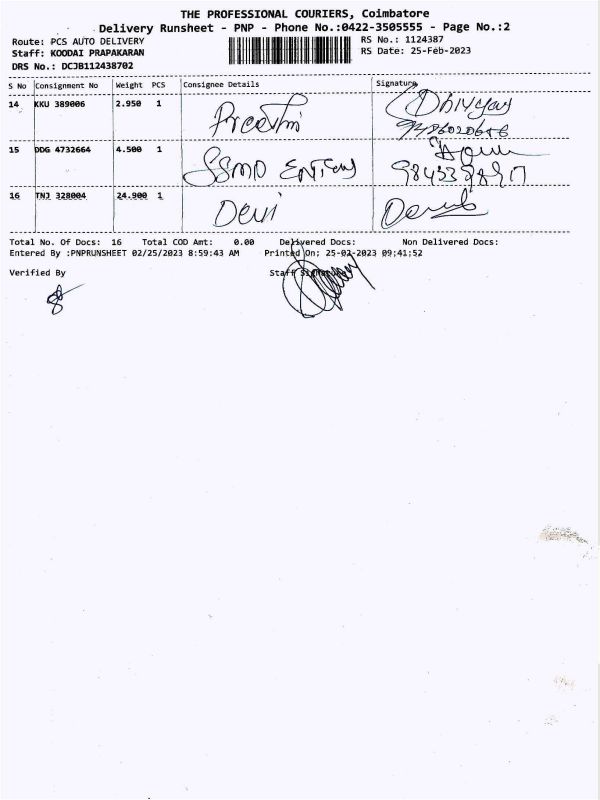 THE PROFESSIONAL COURIERS, Coimbatore
Delivery Runsheet - PNP - Phone No.:0422-3505555 - Page No.:2
Route: PCS AUTO DELIVERY
RS No.: 1124387
Staff: KOODAI PRAPAKARAN
RS Date: 25-Feb-2023
DRS No.: DCJB112438702
S No Consignment No Weight PCS Consignee Details Signature
14 KKU 389006 2.950 1 Preethi Dhivya
15 DDG 4732664 4.500 1
16 TNJ 328004 24.900 1 Devi
Total No. Of Docs: 16 Total COD Amt: 0.00 Delivered Docs: Non Delivered Docs:
Entered By :PNPRUNSHEET 02/25/2023 8:59:43 AM Printed On; 25-02-2023 09:41:52
Verified By Staff Signature